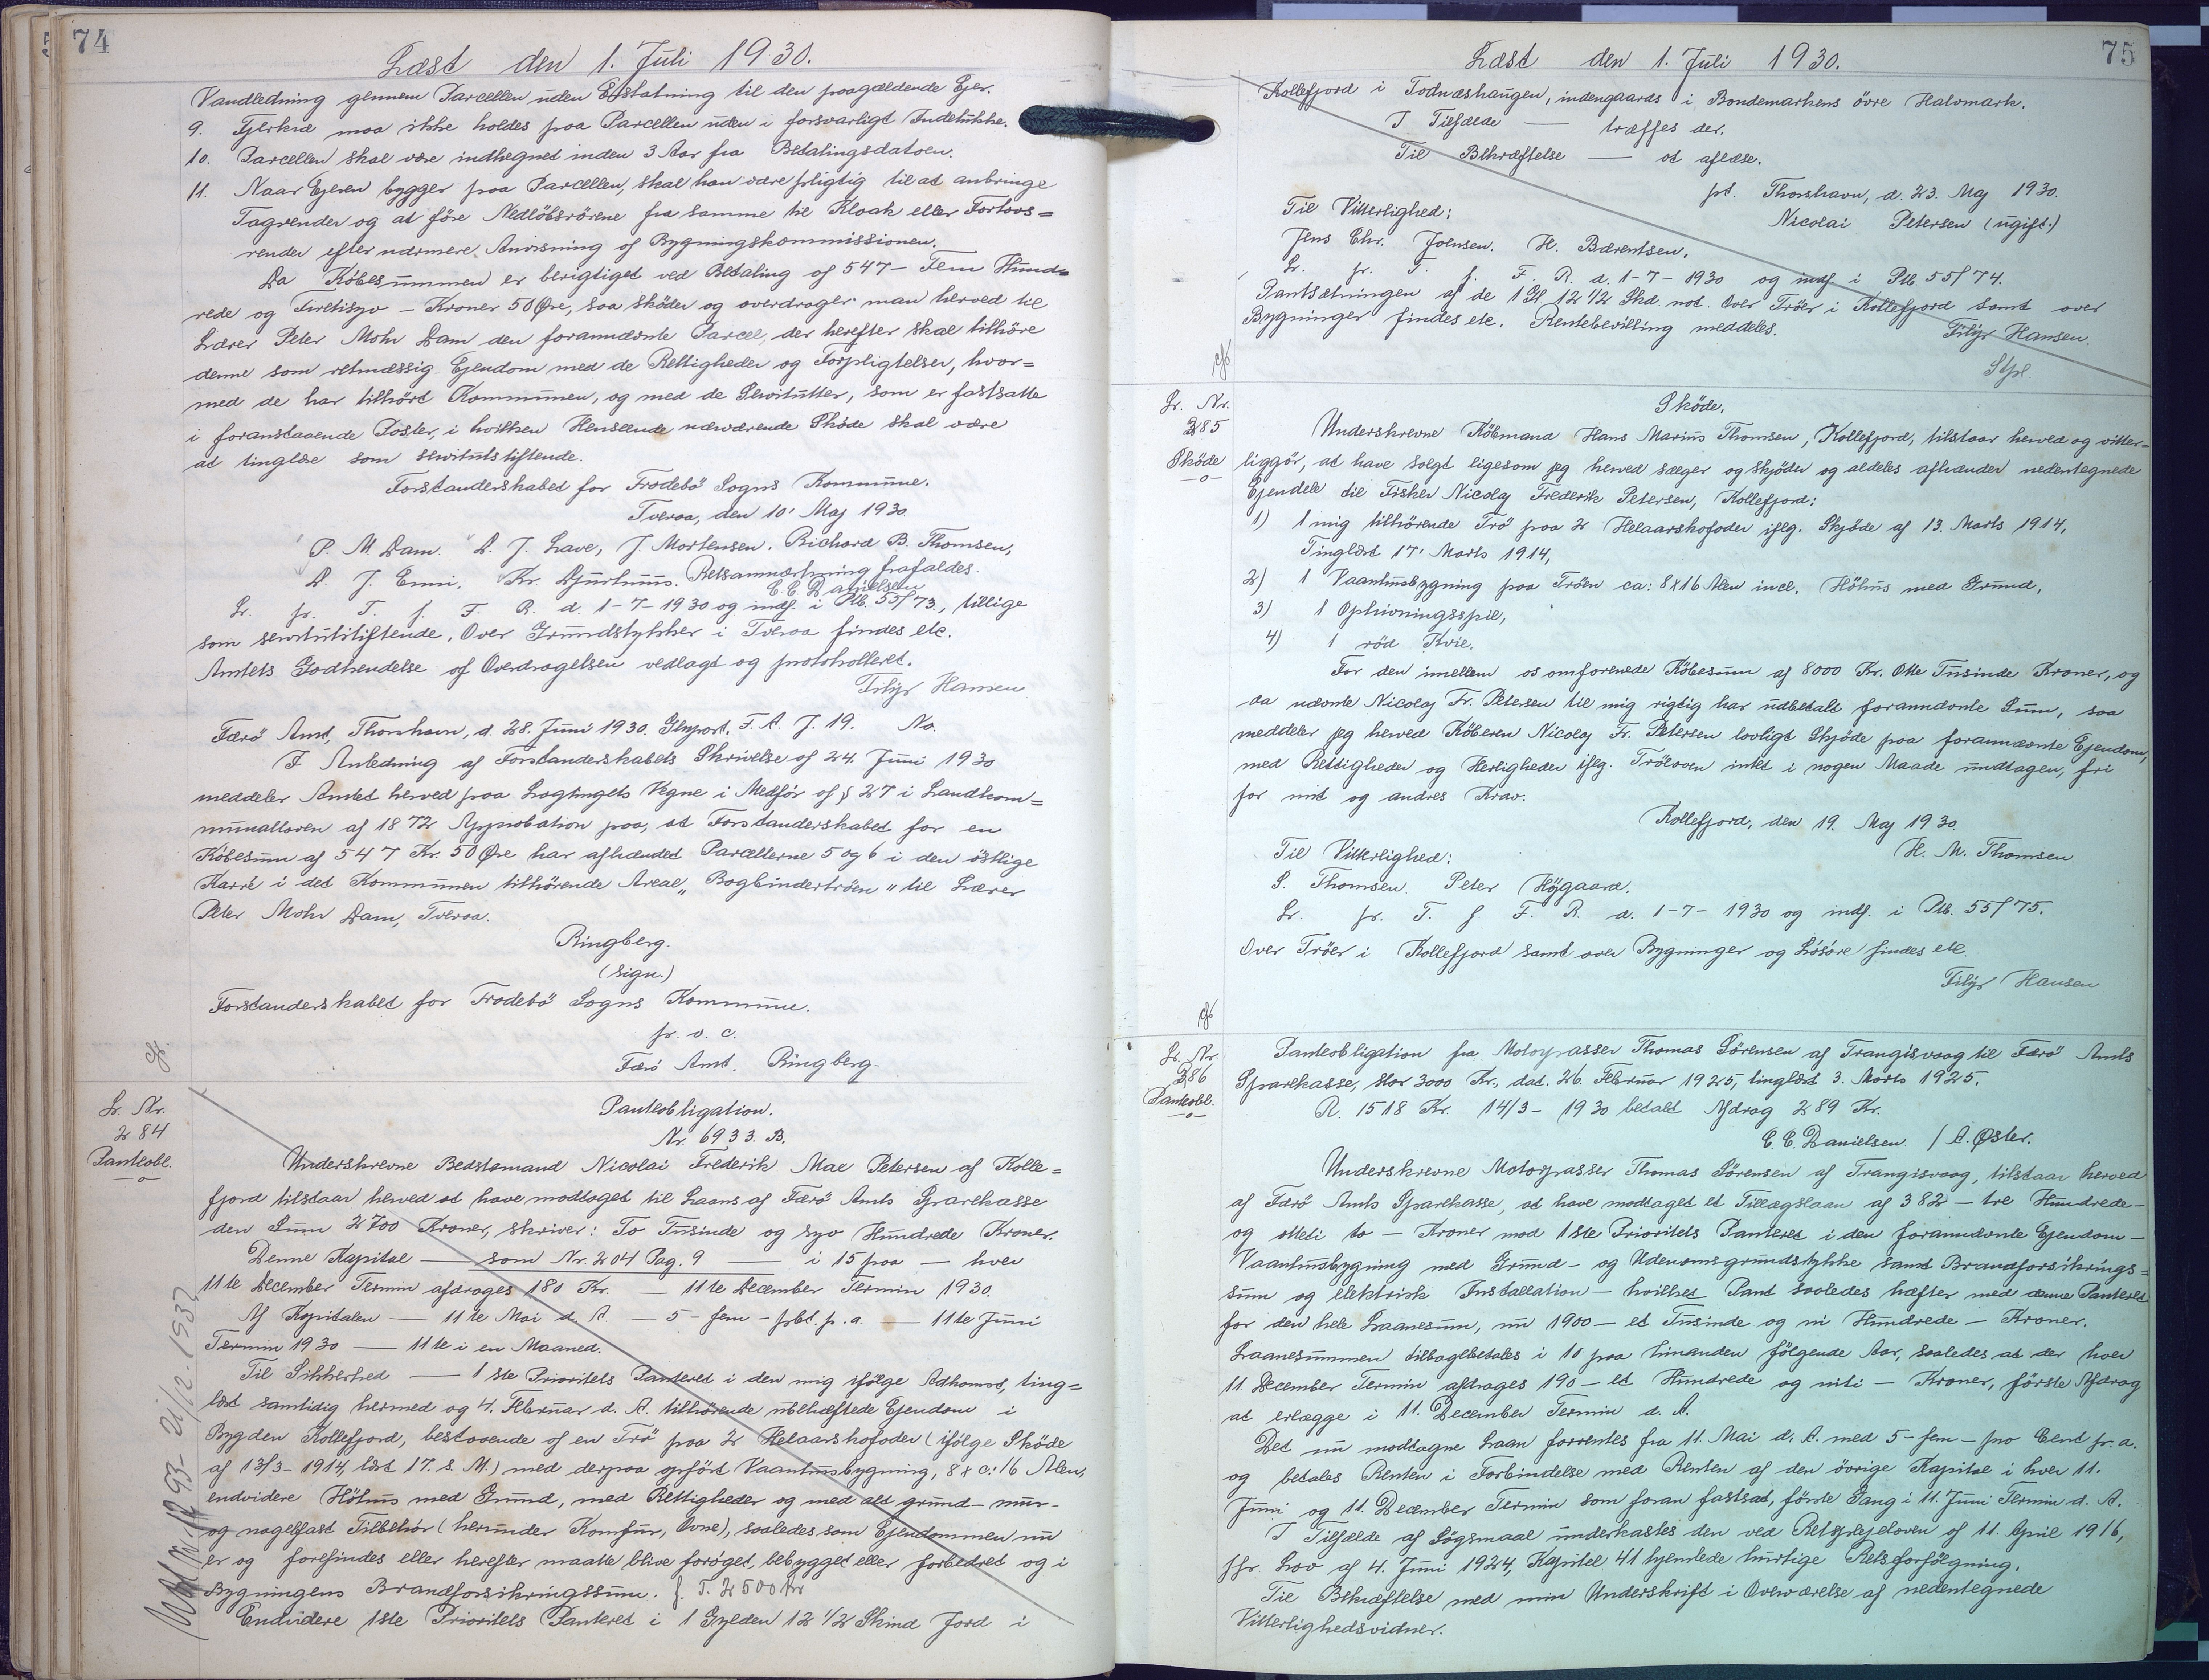 74
Læst den 1. Juli 1930.
Vandledning gennem Parcellen uden Erstatning til den paagældende Ejer.
9. Fjerkræ maa ikke holdes paa Parcellen uden i forsvarligt Indelukke.
10. Parcellen skal være indhegnet inden 3 Aar fra Betalingsdatoen.
11. Naar Ejeren bygger paa Parcellen, skal han være pligtig til at anbringe
Tagrender og at føre Nedløbsrørene fra samme til Kloak eller Fortovs=
render efter nærmere Anvisning af Bygningskommissionen.
Da Købesummen er berigtiget ved Betaling af 547 – Fem Hund=
rede og Firetisyv – Kroner 50 Øre, saa skøder og overdrager man herved til
Lærer Peter Mohr Dam den forannævnte Parcel, der herefter skal tilhøre
denne som retmæssig Ejendom med de Rettigheder og Forpligtelser, hvor=
med de har tilhørt Kommunen, og med de Servitutter, som er fastsatte
i foranstaaende Poster, i hvilken Henseende nærværende Skøde skal være
at tinglæse som servitutstiftende.
Forstanderskabet for Frodebö Sogns Kommune.
Tveraa, den 10' Maj 1930.
P. M. Dam. D. J. Lave, J. Mortensen. Richard B. Thomsen,
D. J. Enni. Kr. Djurhuus. Retsanmærkning frafaldes.
C. C. Danielsen
Lr. pr. T. f. F. R. d. 1-7-1930 og indf. i Ptb. 55/73., tillige
som servitutstiftende. Over Grundstykker i Tveraa findes etc.
Amtets Godkendelse af Overdragelsen vedlagt og protokolleret.
Filip Hansen
Færö Amt, Thorshavn, d. 28. Juni 1930. F. A. J. 19. No.
I Anledning af Forstanderskabets Skrivelse af 24. Juni 1930
meddeler Amtet herved paa Lagtingets Vegne i Medfør af § 27 i Landkom=
munalloven af 1872 Approbation paa, at Forstanderskabet for en
Købesum af 547 Kr. 50 Øre har afhændet Parcellerne 5 og 6 i den østlige
Karré i det Kommunen tilhørende Areal „Bogbindertrøen" til Lærer
Peter Mohr Dam, Tveraa.
Ringberg.
(sign.)
Forstanderskabet for Frodebö Sogns Kommune.
pr. o. c.
Færö Amt. Ringberg.
cfr.
Lr. Nr.
284
Panteobl.
Panteobligation.
Nr. 6933. B.
Underskrevne Bedstemand Nicolai Frederik Mae Petersen af Kolle=
fjord tilstaar herved at have modtaget til Laans af Færö Amts Sparekasse
den Sum 2700 Kroner, skriver: To Tusinde og syv Hundrede Kroner.
Denne Kapital — som Nr. 204 Pag. 9 — i 15 paa — hver
11te December Termin afdrages 180 Kr. — 11te December Termin 1930.
Af Kapitalen — 11te Mai d. A. — 5 – fem – pct. p. a. — 11te Juni
Termin 1930 — 11te i en Maaned.
Til Sikkerhed — 1ste Prioritets Panteret i den mig ifølge Adkomst, ting=
læst samtidig hermed og 4. Februar d. A. tilhørende ubehæftede Ejendom i
Bygden Kollefjord, bestaaende af en Trö paa 2 Helaarskofoder (ifølge Skøde
af 13/3-1914, læst 17. s. M.) med derpaa opført Vaanhusbygning, 8 x c: 16 Alen,
endvidere Höhus med Grund, med Rettigheder og med alt grund- mur-
og nagelfast Tilbehør (herunder Komfur, Ovne), saaledes som Ejendommen nu
er og forefindes eller herefter maatte blive forøget, bebygget eller forbedret og i
Bygningens Brandforsikringssum. f. T. 2500 Kr
Endvidere 1ste Prioritets Panteret i 1 Gylden 12 1/2 Skind Jord i
75
Læst den 1. Juli 1930.
Kollefjord i Todnæshaugen, indengaards i Bondemarkens övre Halvmark.
I Tilfælde — træffes der.
Til Bekræftelse — at aflæse.
pt. Thorshavn, d. 23. Maj 1930.
Til Vitterlighed:
Nicolai Petersen (ugift.)
Jens Chr. Joensen. H. Bærentsen.
Lr. pr. T. f. F. R. d. 1-7-1930 og indf. i Ptb. 55/74.
Pantsætningen af de 1 Gl 12 1/2 Skd. not. Over Tröer i Kollefjord samt over
Bygninger findes etc. Rentebevilling meddeles.
Filip Hansen.
cfr
Lr. Nr.
285
Skøde
Skøde.
Underskrevne Købmand Hans Marius Thomsen, Kollefjord, tilstaar herved og vitter=
liggør, at have solgt ligesom jeg herved sælger og skjøder og aldeles afhænder nedentegnede
Ejendele til Fisker Nicolaj Frederik Petersen, Kollefjord:
1) 1 mig tilhørende Trö paa 2 Helaarskofoder iflg. Skjøde af 13. Marts 1914,
Tinglæst 17' Marts 1914,
2) 1 Vaanhusbygning paa Tröen ca: 8x16 Alen incl. Höhus med Grund,
3) 1 Ophivningsspil,
4) 1 rød Kvie.
For den imellem os omforenede Købesum af 8000 Kr. Otte Tusinde Kroner, og
da nævnte Nicolaj Fr. Petersen til mig rigtig har udbetalt forannævnte Sum, saa
meddeler jeg herved Köberen Nicolaj Fr. Petersen lovligt Skjøde paa forannævnte Ejendom,
med Rettigheder og Herligheder iflg. Tröloven intet i nogen Maade undtagen, fri
for mit og andres Krav.
Kollefjord, den 19. Maj 1930.
Til Vitterlighed:
H. M. Thomsen
S. Thomsen. Peter Höjgaard.
Lr. pr. T. f. F. R. d. 1-7-1930 og indf. i Ptb. 55/75.
Over Tröer i Kollefjord samt over Bygninger og Løsøre findes etc.
Filip Hansen
cfr
Lr. Nr.
286
Panteobl.
Panteobligation fra Motorpasser Thomas Sörensen af Trangisvaag til Færö Amts
Sparekasse, stor 3000 Kr., dat. 26. Februar 1925, tinglæst 3. Marts 1925.
R. 1518 Kr. 14/3-1930 betalt Afdrag 289 Kr.
C. C. Danielsen. / A. Øster.
Underskrevne Motorpasser Thomas Sörensen af Trangisvaag, tilstaar herved
af Færö Amts Sparekasse, at have modtaget et Tillægslaan af 382 – tre Hundrede-
og otteti to – Kroner mod 1ste Prioritets Panteret i den forannævnte Ejendom –
Vaanhusbygning med Grund- og Udenomsgrundstykke samt Brandforsikrings=
sum og elektrisk Installation – hvilket Pant saaledes hæfter med denne Panteret
for den hele Laanesum, nu 1900 – et Tusinde og ni Hundrede – Kroner.
Laanesummen tilbagebetales i 10 paa hinanden følgende Aar, saaledes at der hver
11 December Termin afdrages 190 – et Hundrede og niti – Kroner, første Afdrag
at erlægge i 11. December Termin d. A.
Det nu modtagne Laan forrentes fra 11. Mai d. A. med 5 – fem – pro Cent pr. a.
og betales Renten i Forbindelse med Renten af den övrige Kapital i hver 11.
Juni og 11. December Termin som foran fastsat, første Gang i 11. Juni Termin d. A.
I Tilfælde af Søgsmaal underkastes den ved Retsplejeloven af 11. April 1916,
jfr. Lov af 4. Juni 1924, Kapitel 41 hjemlede hurtige Retsforfølgning.
Til Bekræftelse med min Underskrift i Overværelse af nedentegnede
Vitterlighedsvidner.